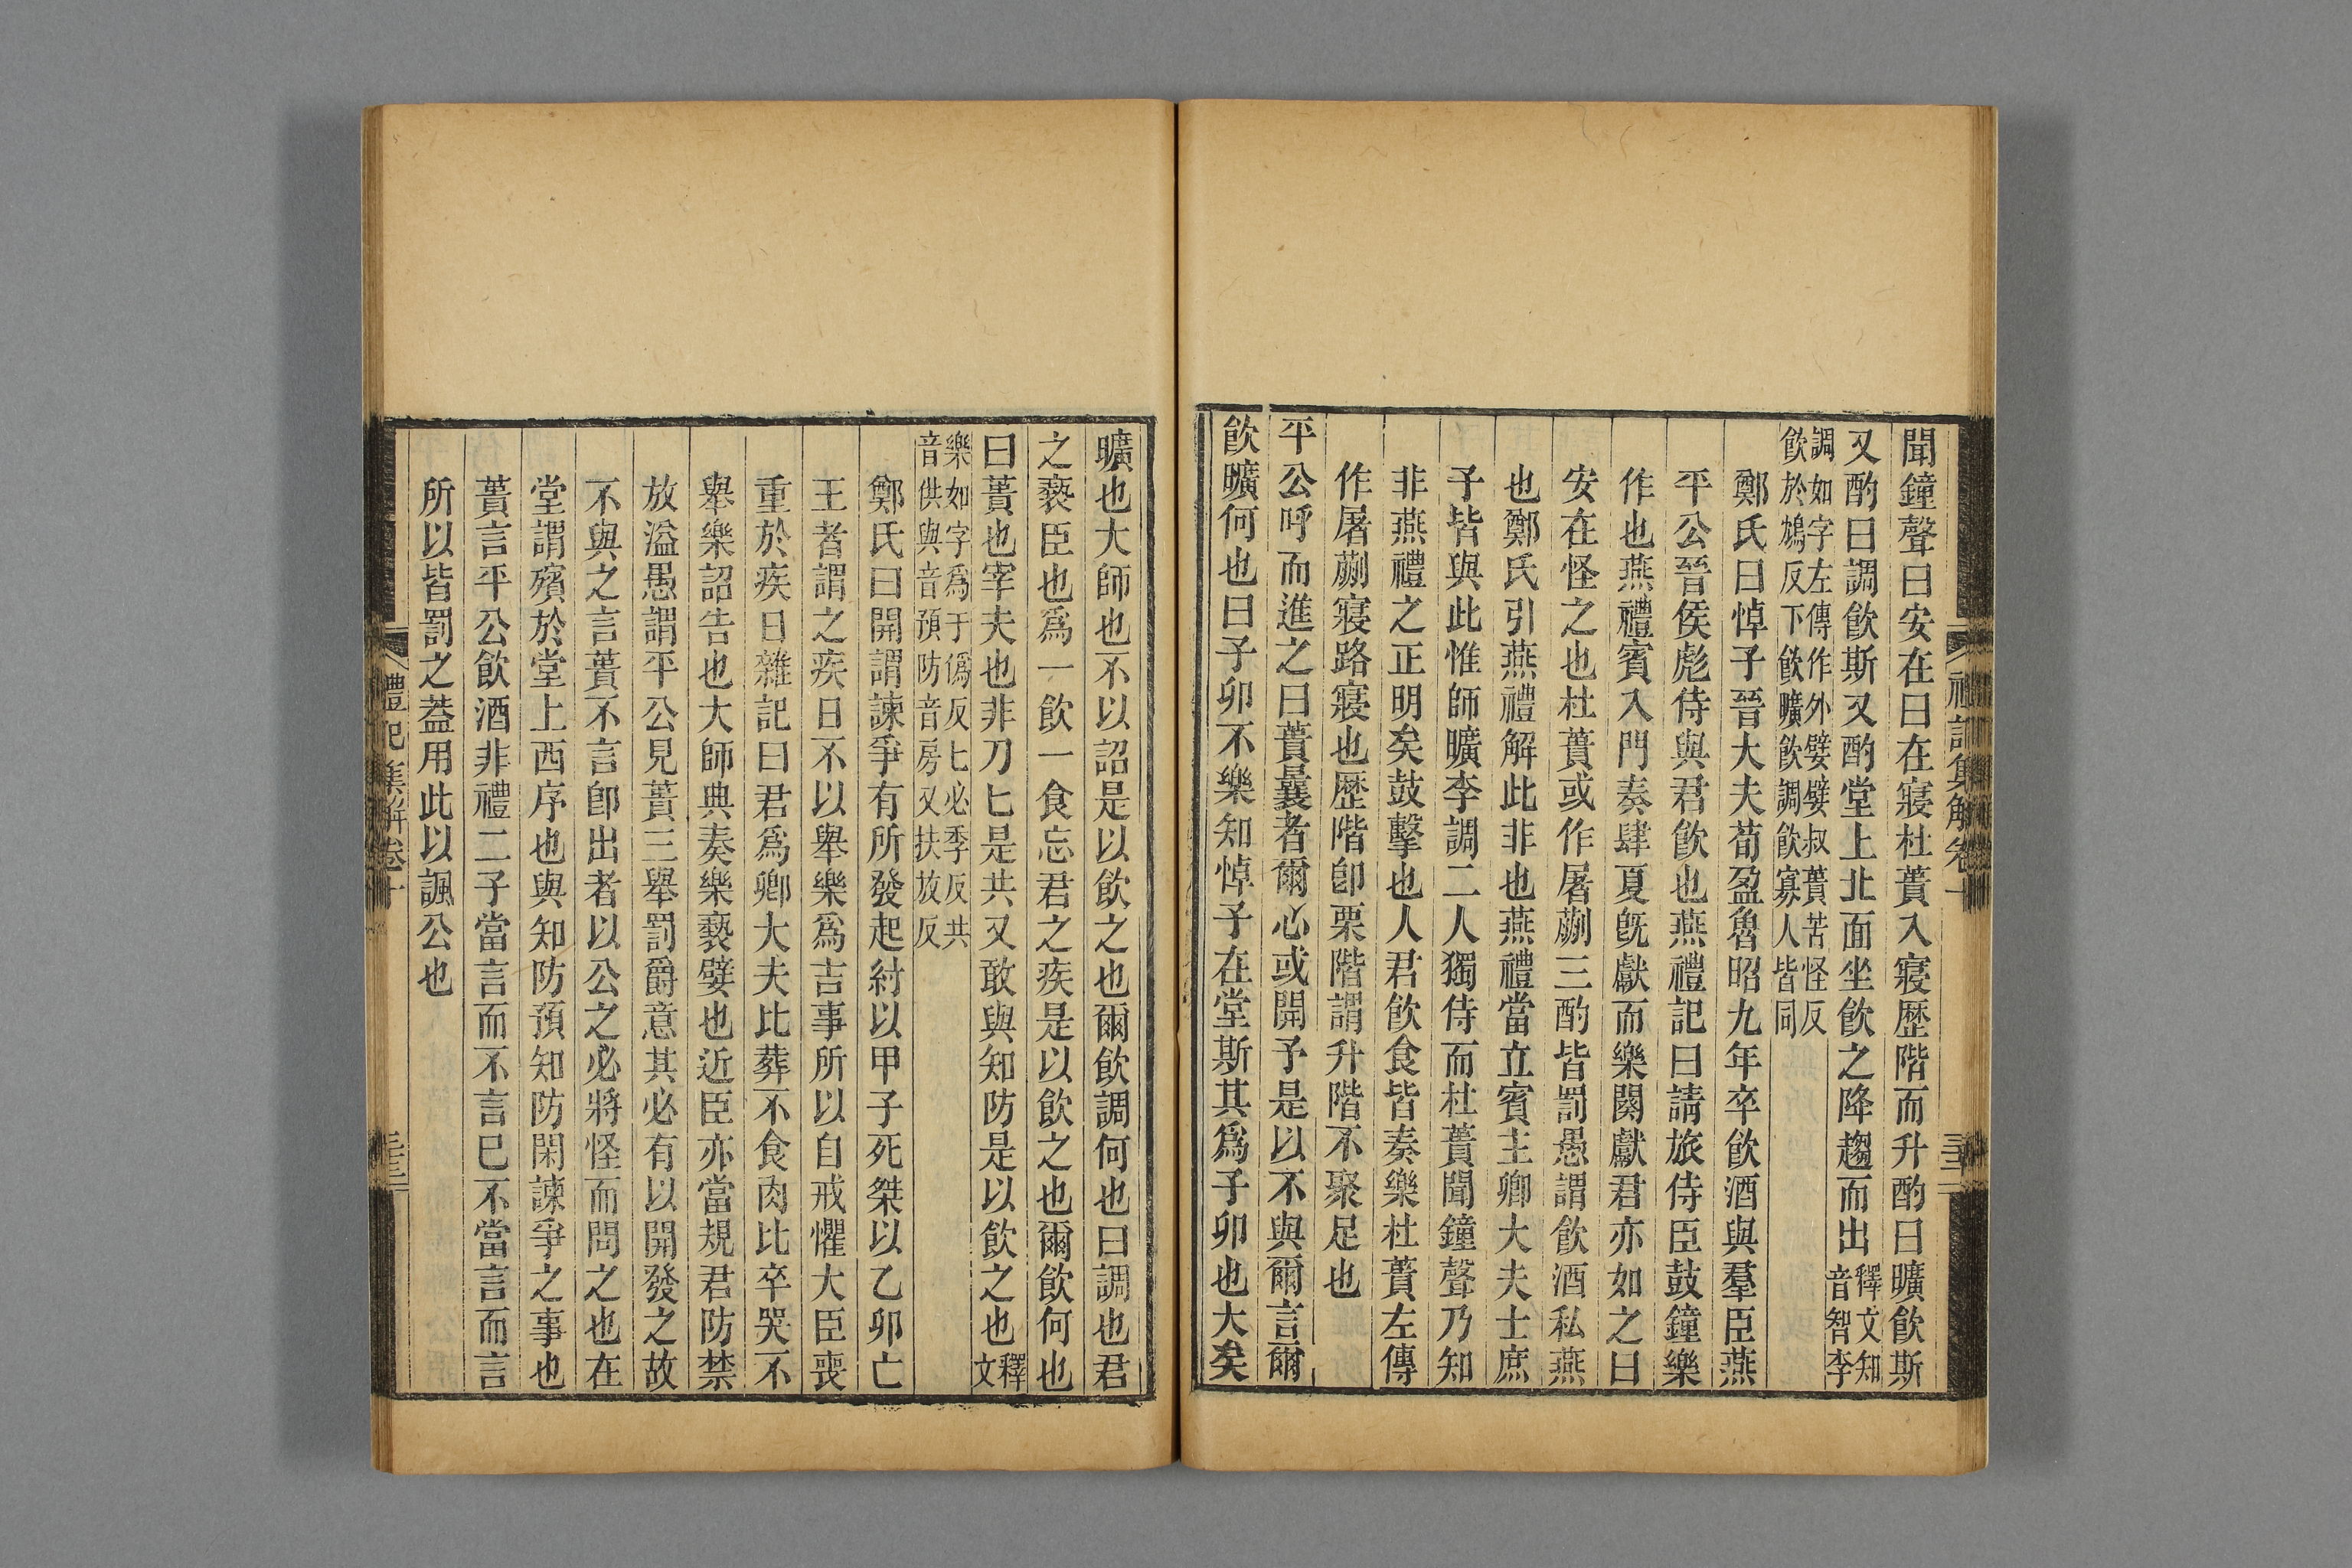 聞鐘聲曰安在曰在寢杜蕢入寢歷階而升酌曰曠飮斯
又酌曰調飮斯又酌堂上北面坐飮之降趨而出釋文知
音智李
調如字左傳作外嬖嬖叔蕢苦怪反
飮於鴆反下飮曠飮調飮寡人皆同
鄭氏曰悼子晉大夫荀盈魯昭九年卒飮酒與羣臣燕
平公晉侯彪侍與君飮也燕禮記曰請旅侍臣鼓鐘樂
作也燕禮賓入門奏肆夏旣獻而樂闋獻君亦如之曰
安在怪之也杜蕢或作屠蒯三酌皆罰愚謂飮酒私燕
也鄭氏引燕禮解此非也燕禮當立賓主卿大夫士庶
子皆與此惟師曠李調二人獨侍而杜蕢聞鐘聲乃知
非燕禮之正明矣鼓擊也人君飮食皆奏樂杜蕢左傳
作屠蒯寢路寢也歷階卽栗階謂升階不聚足也
平公呼而進之曰蕢曩者爾心或開予是以不與爾言爾
飮曠何也曰子卯不樂知悼子在堂斯其爲子卯也大矣
禮記集解卷十
三十二
曠也大師也不以詔是以飮之也爾飮調何也曰調也君
之褻臣也爲一飮一食忘君之疾是以飮之也爾飮何也
曰蕢也宰夫也非刀匕是共又敢與知防是以飮之也釋
文
樂如字爲于僞反匕必季反共
音供與音預防音房又扶放反
鄭氏曰開謂諫爭有所發起紂以甲子死桀以乙卯亡
王者謂之疾日不以舉樂爲吉事所以自戒懼大臣喪
重於疾日雜記曰君爲卿大夫比葬不食肉比卒哭不
舉樂詔告也大師典奏樂褻嬖也近臣亦當規君防禁
放溢愚謂平公見蕢三舉罰爵意其必有以開發之故
不與之言蕢不言卽出者以公之必將怪而問之也在
堂謂殯於堂上西序也與知防預知防閑諫爭之事也
蕢言平公飮酒非禮二子當言而不言已不當言而言
所以皆罰之蓋用此以諷公也
禮記集解卷十
三十二